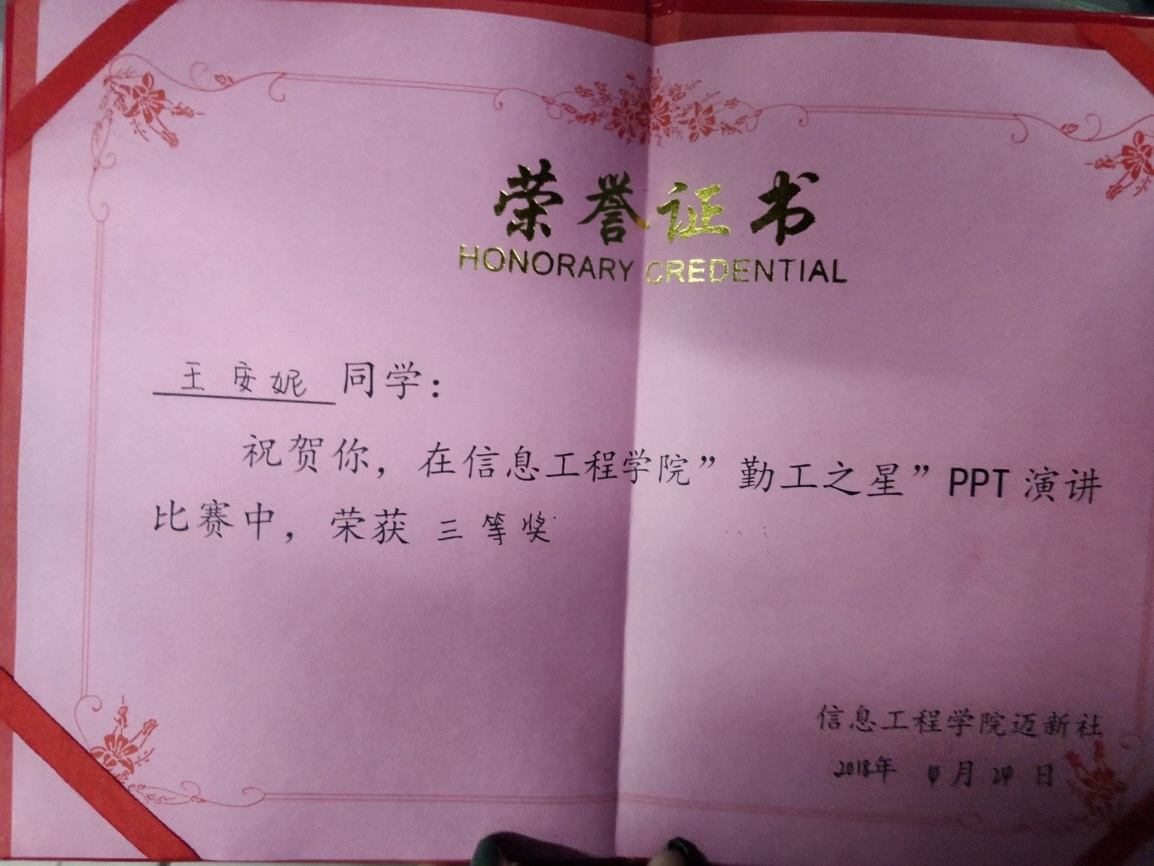 荣誉证书
HONORARY CREDENTIAL
王安妮 同学：
祝贺你，在信息工程学院”勤工之星”PPT 演讲
比赛中，荣获 三等奖
信息工程学院迈新社
2018年 月 24 日